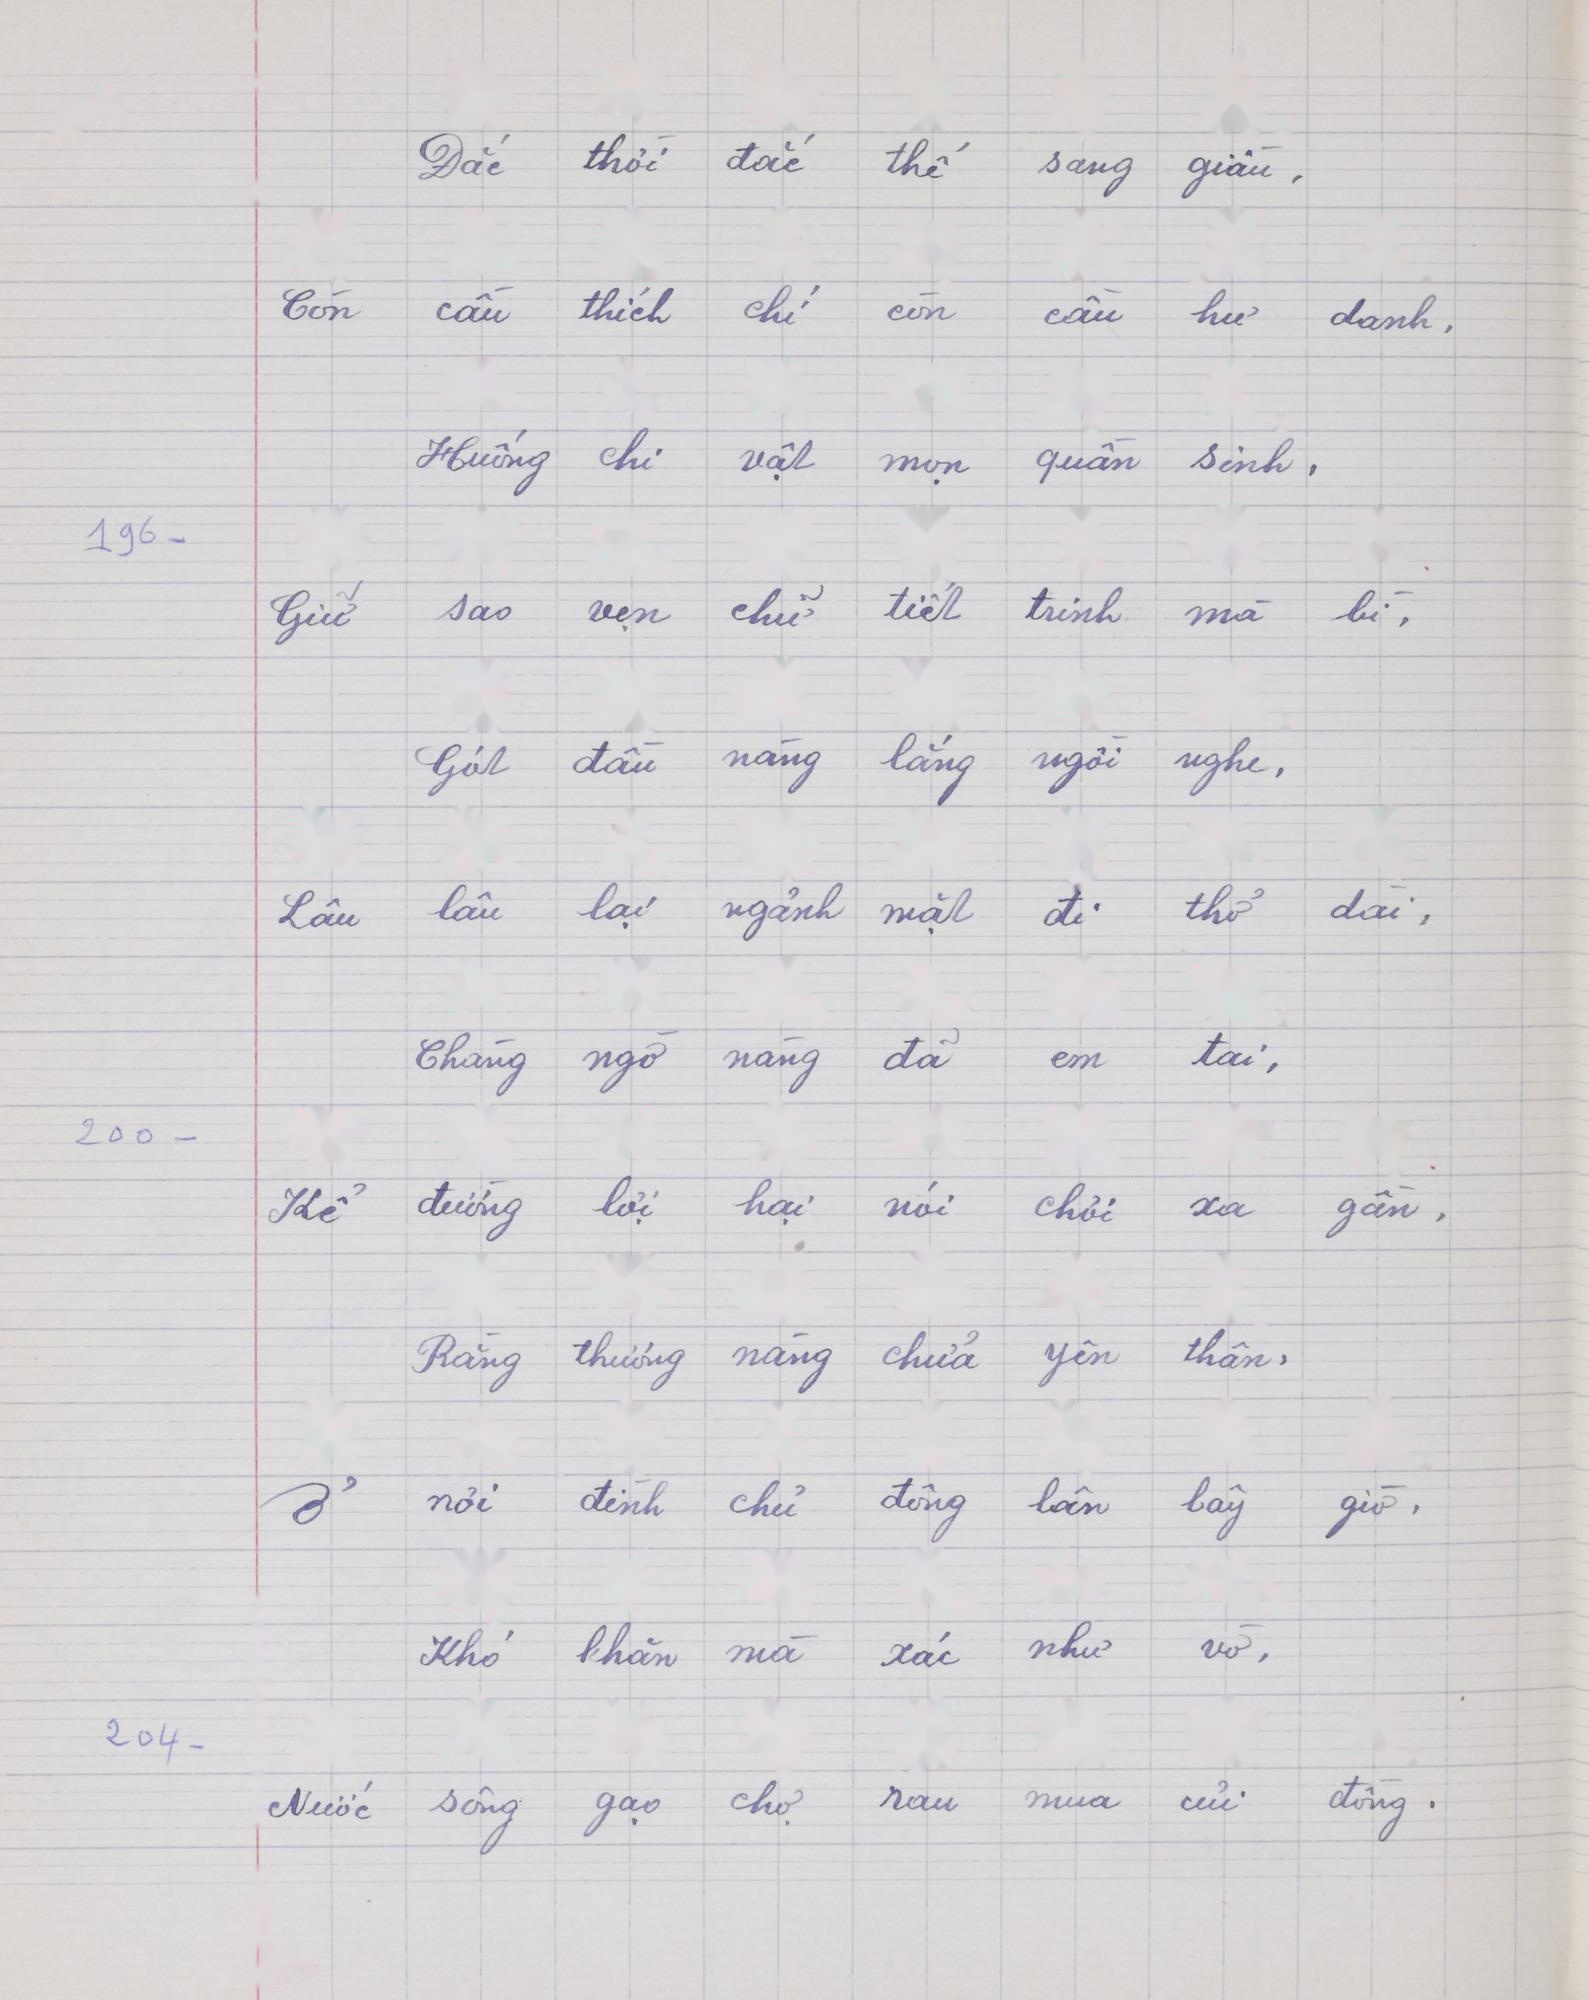 Đắc thời đắc thế sang giầu,
Còn cầu thích chí còn cầu hư danh,
Huống chi vật mọn quần sinh,
196-
Giữ sao vẹn chữ tiết trinh mà bì,
Gót đầu nàng lắng ngồi nghe,
Lâu lâu lại ngảnh mặt đi thở dài,
Chàng ngờ nàng đã em tai,
200-
Kể đường lợi hại nói chơi xa gần,
Rằng thương nàng chửa yên thân,
Ở nơi đình chử đông lân bây giờ,
Khó khăn mà xác như vờ,
204-
Nước sông gạo chợ rau mua củi đồng.